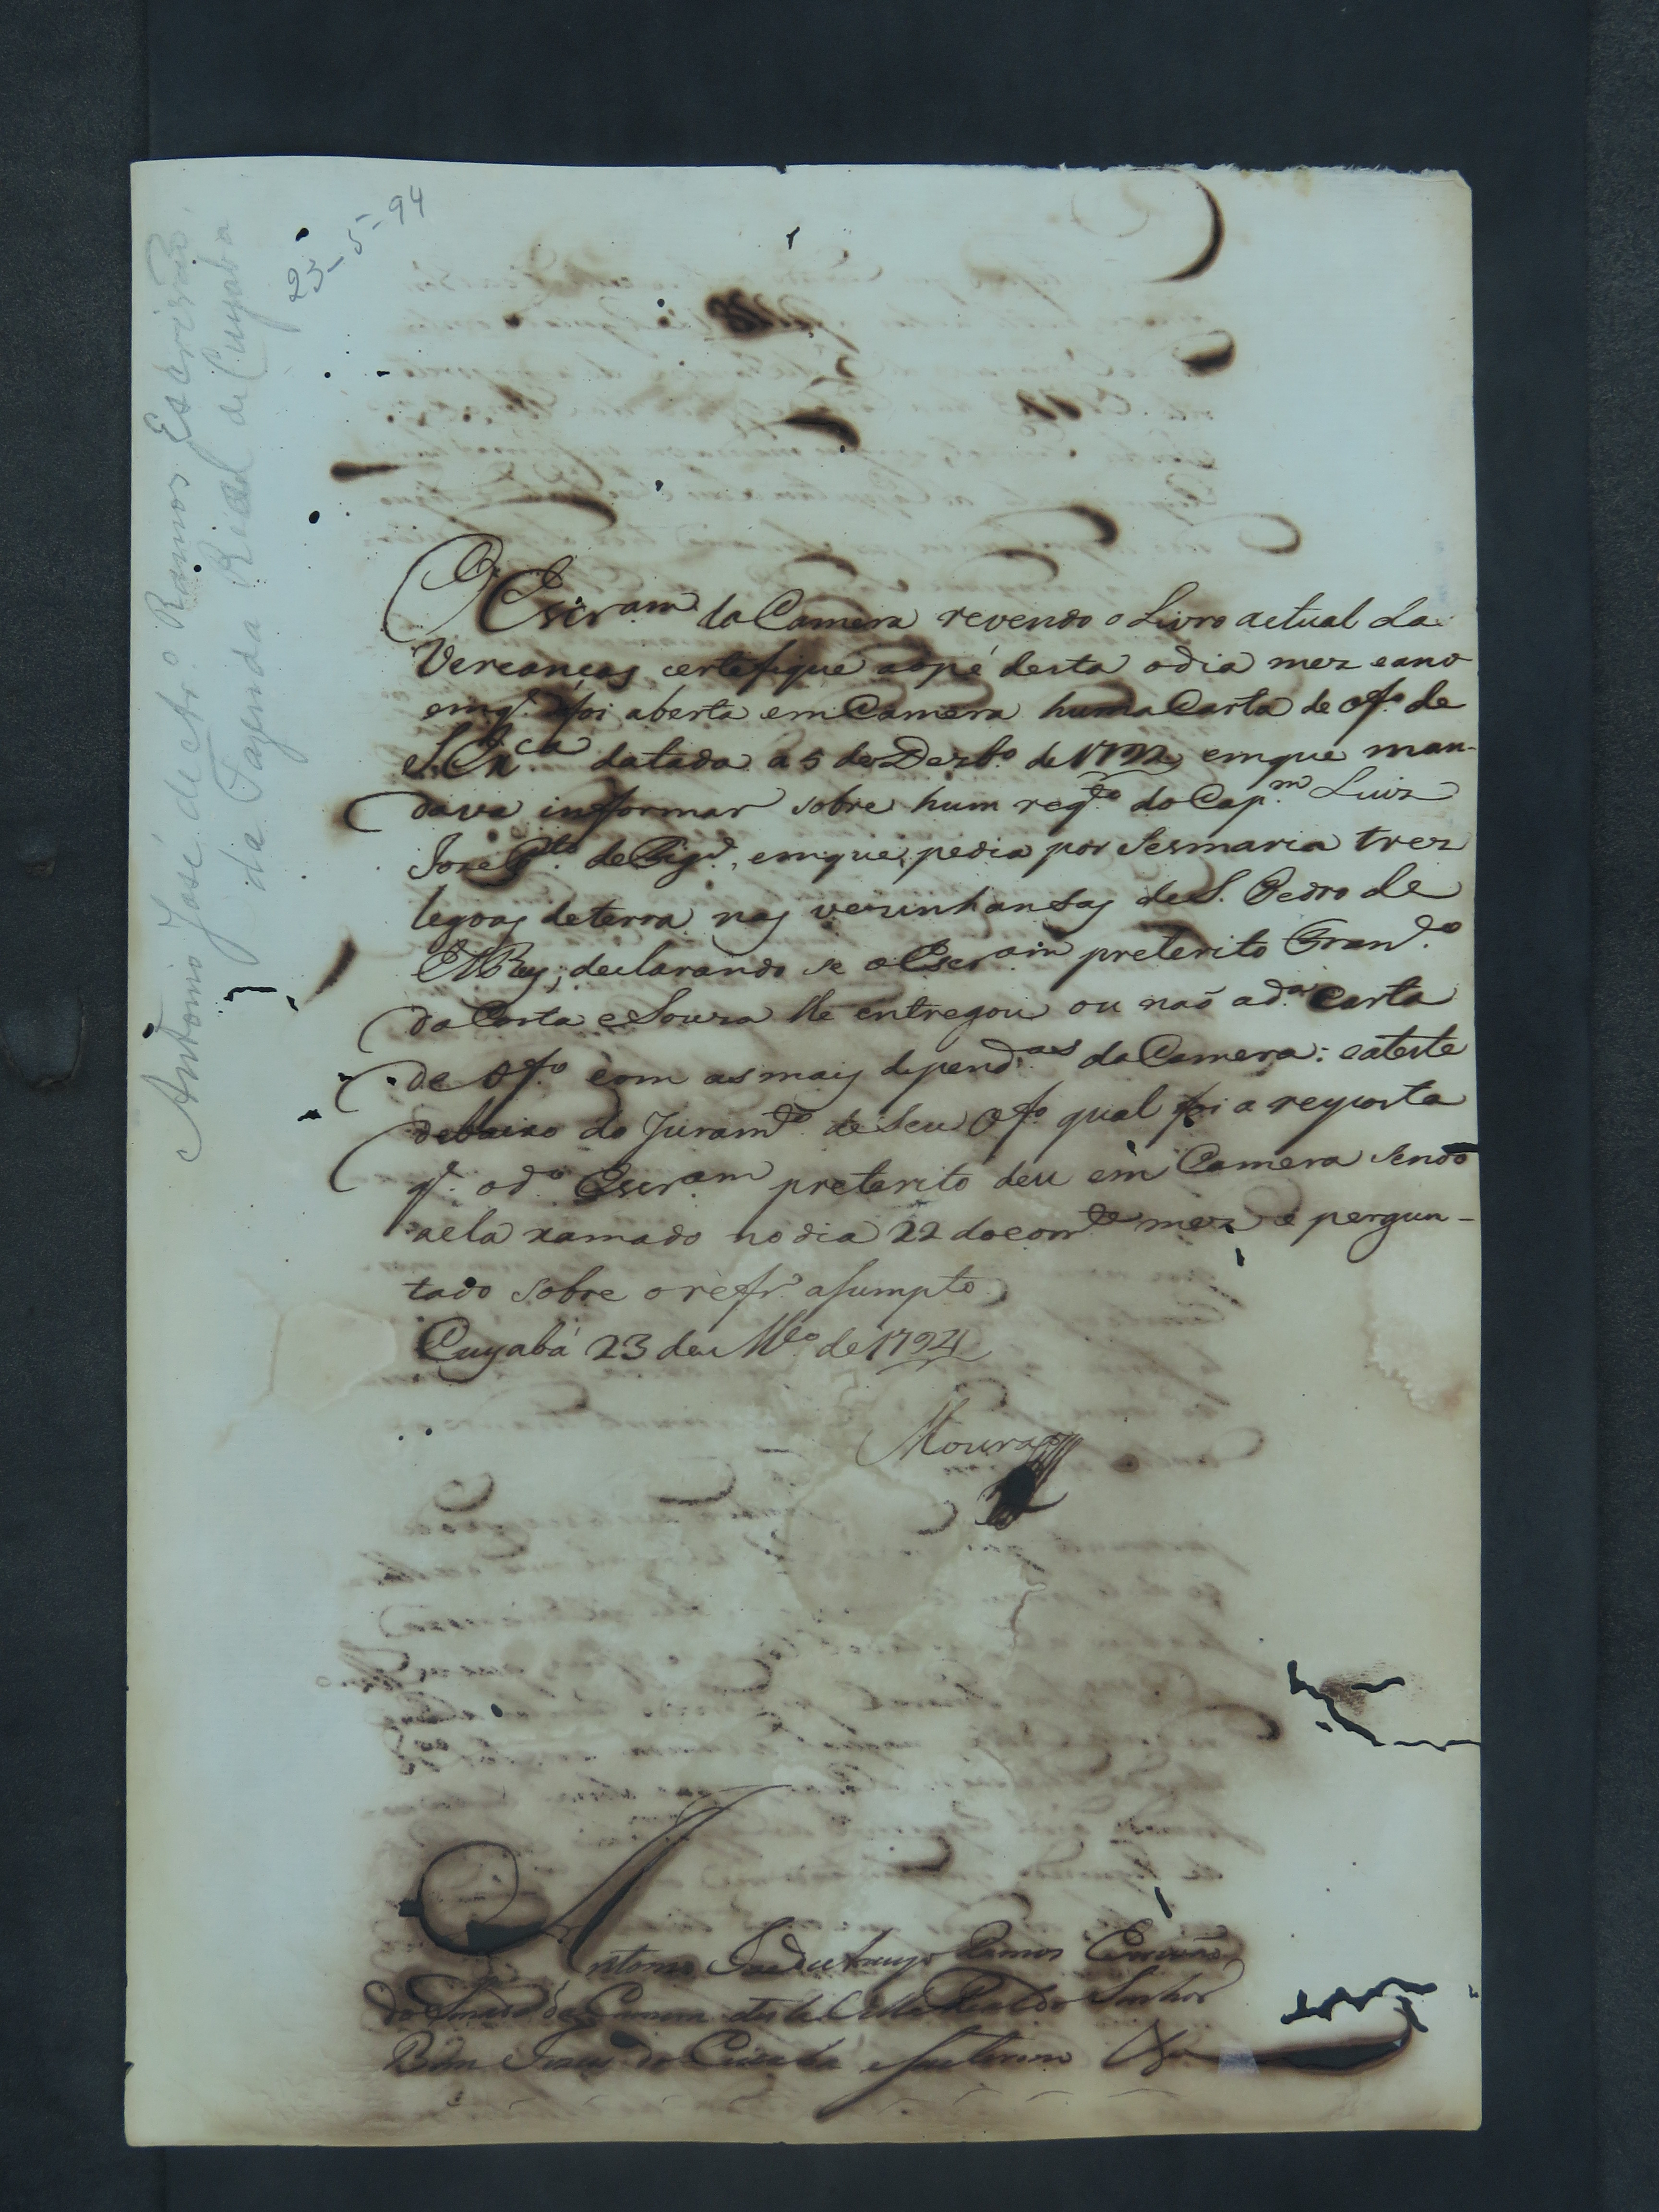 Antonio José de Ar.º Ramos Escrivaõ.
da Fazenda Real de Cuyaba
23-5-94
O Escr.am da Camera revendo o Livro actual da
Vereanças certefique ao pé desta o dia mez e ano
em q.' foi aberta em Camera huma Carta de Of.º de
S. Ex.ca datada a 5 de Dezb.º de 1792, em que man-
dava informar sobre hum req.to do Cap.m Luiz
Joze P.to de em que pedia por Sesmaria trez
legoas de terra nas vezinhansas de S. Pedro de
ElRey; declarando se o Escr.am preterito Fran.co
da Costa e Souza lhe entregou ou naõ a d.a Carta
de Of.º com as mais depend.as da Camera: e ateste
debaixo do Juram.to de seu Of.º qual foi a reposta
q.' o d.º Escr.am preterito deu em Camera sendo
a ela xamado no dia 22 do corr.te mez e pergun-
tado sobre o refr.º asumpto.
Cuyabá 23 de M.º de 1794
Moura
Antonio Joze de Araujo Ramos Escrivaõ
da Camera desta Villa Real do Senhor
Bom Jezus do Cuiaba e seu termo &